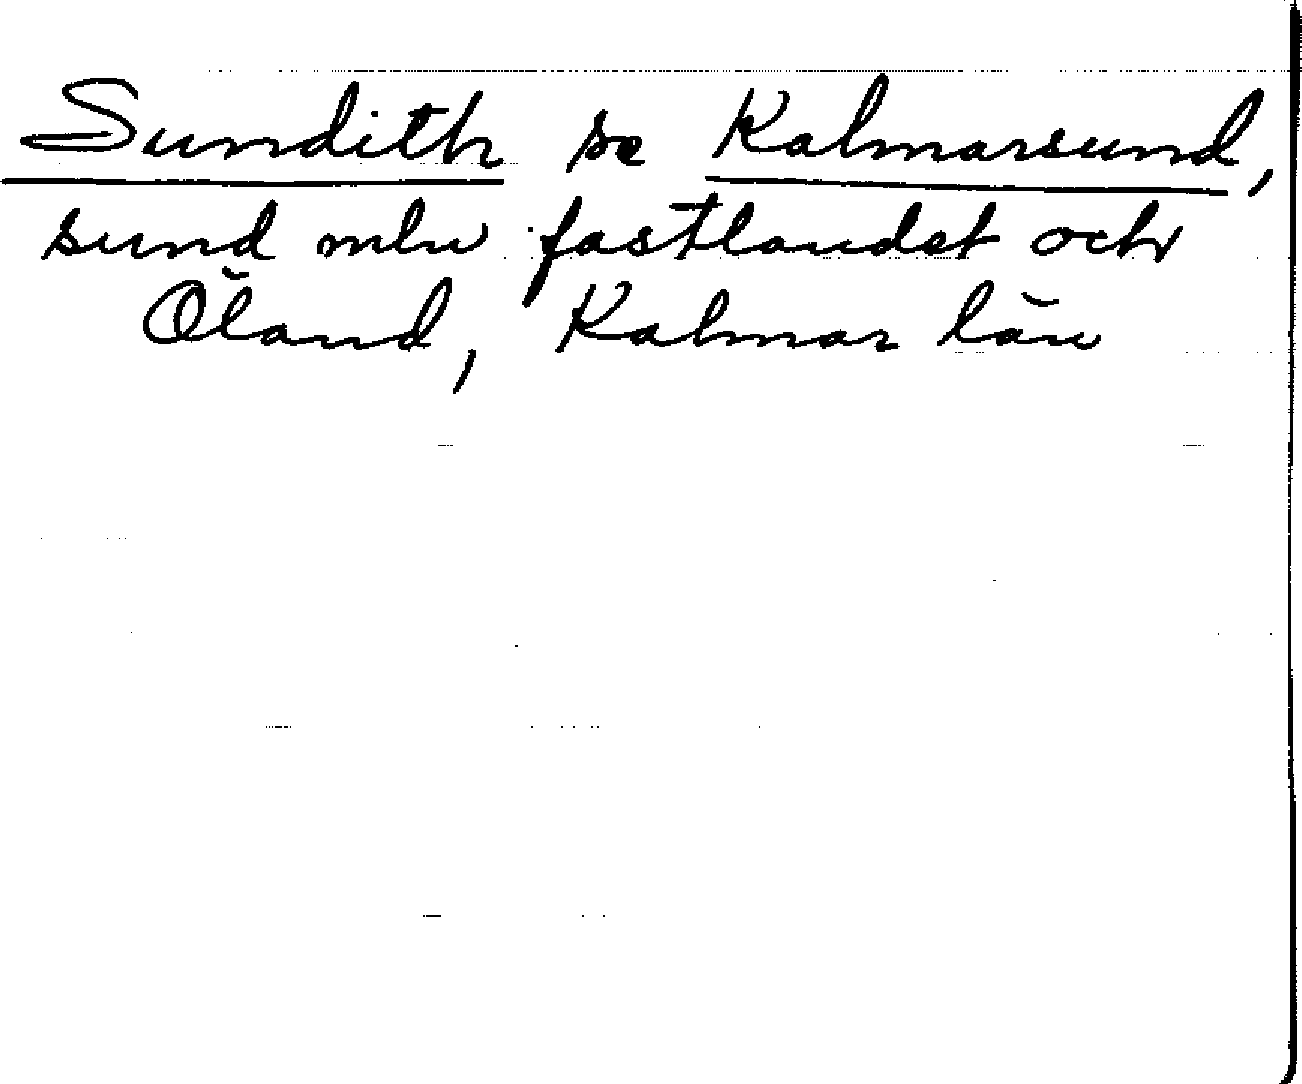 Sundith se Kalmarsund,
sund mln fastlandet och
Öland, Kalmar län